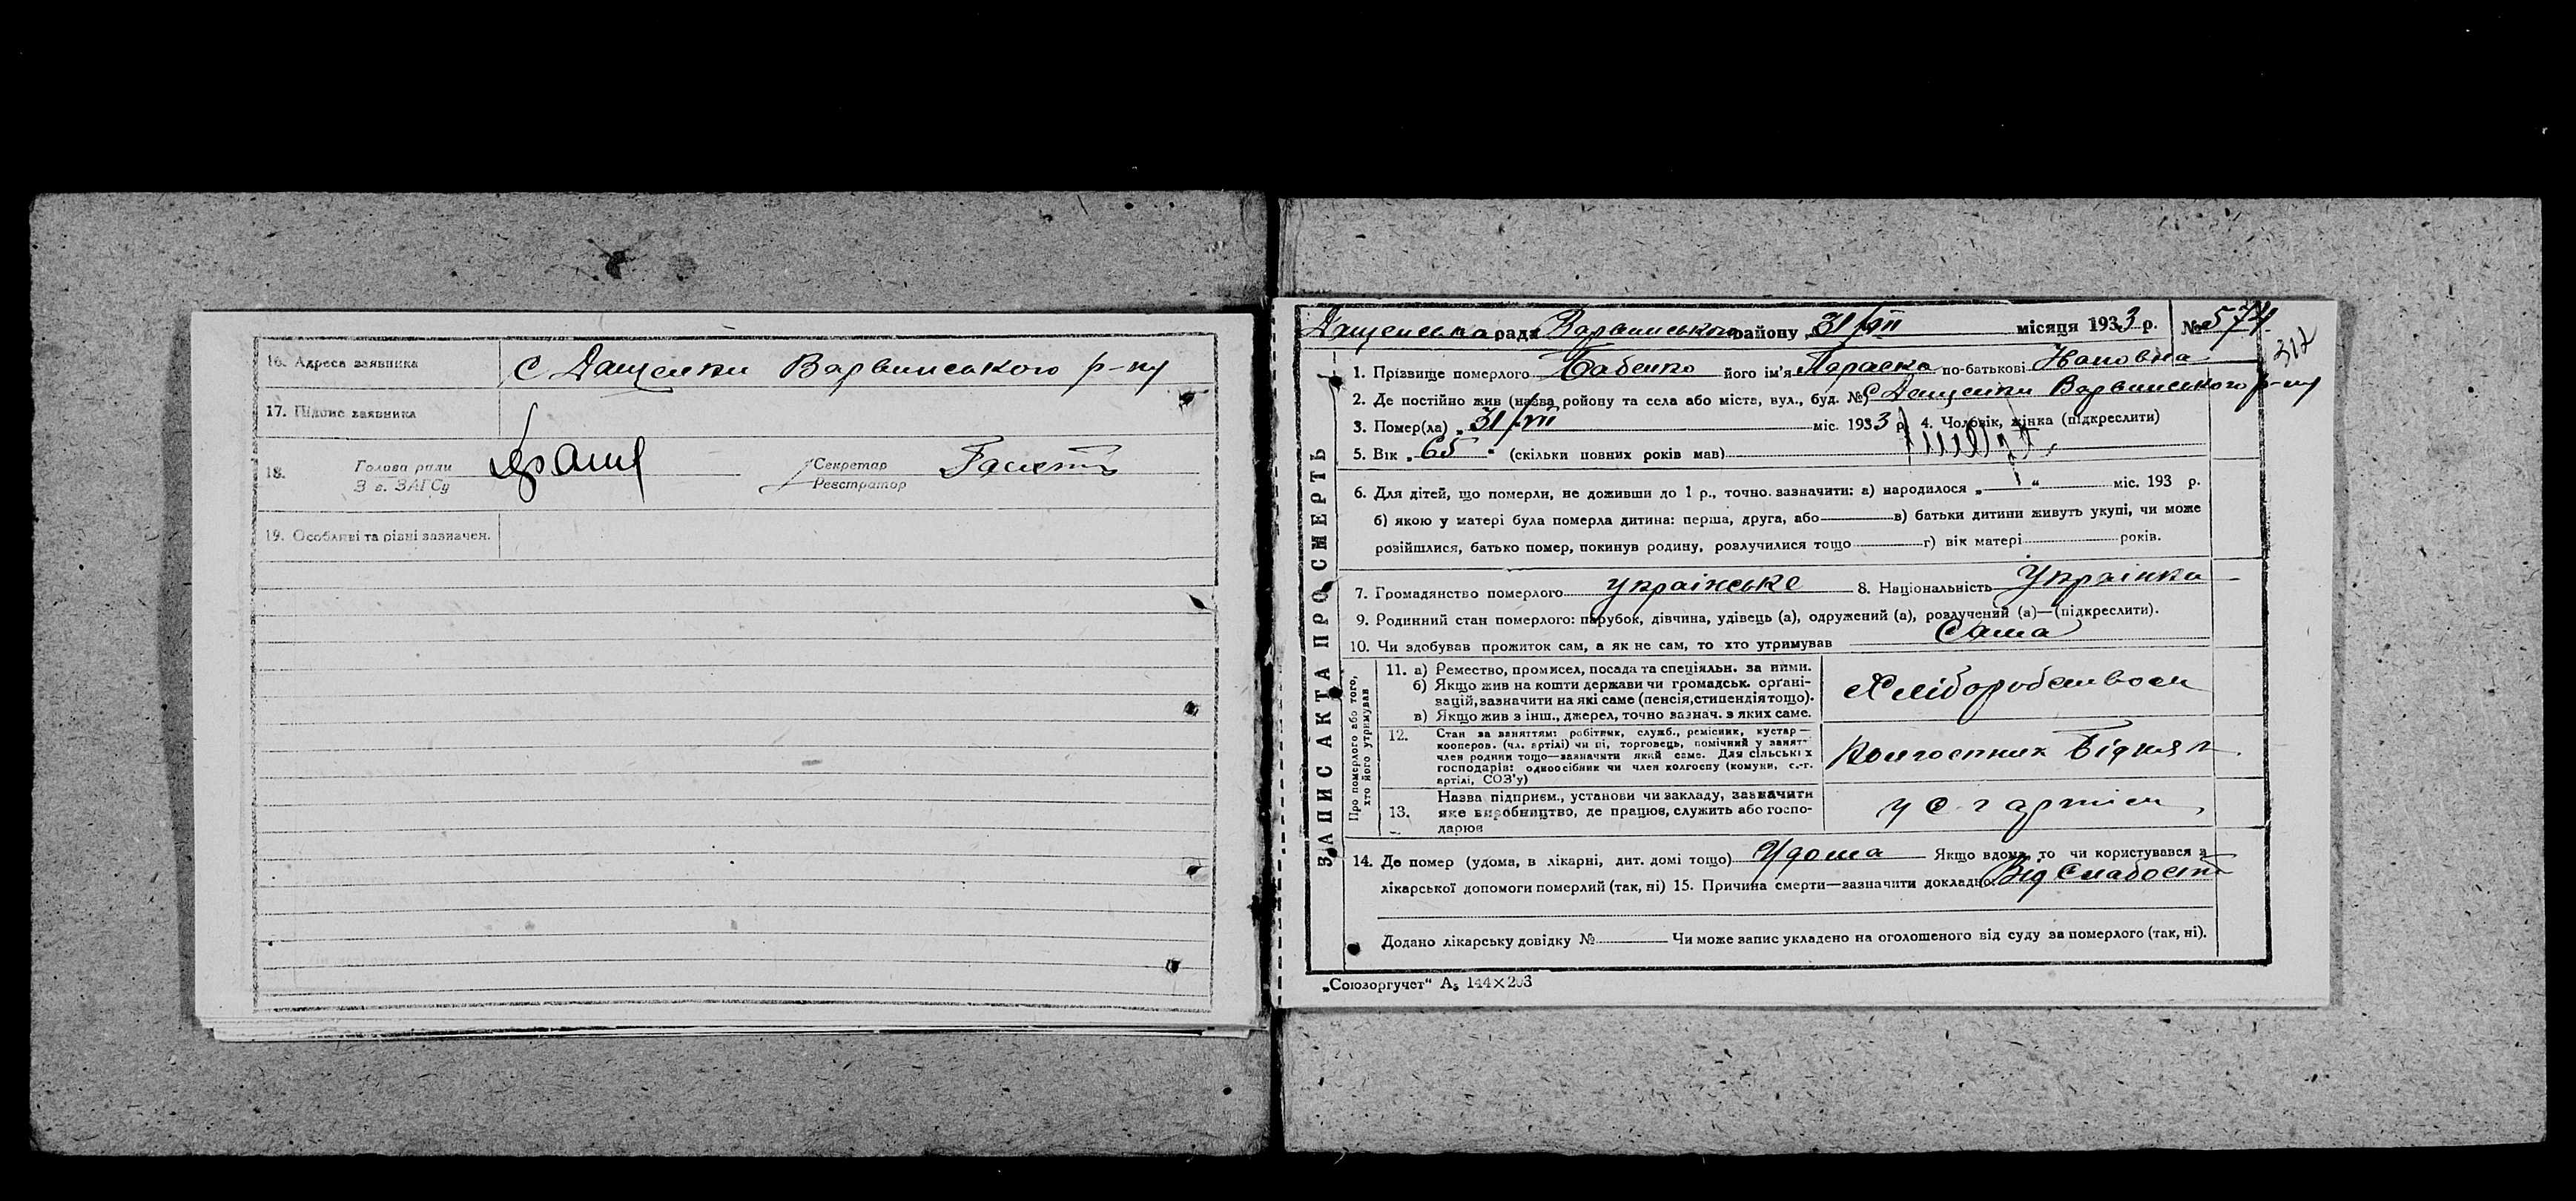 16. Адреса заявника с Дащенки Варвинського р-ну
17. Підпис заявника
18. Голова ради
З в. ЗАГСу
Секретар
Реєстратор
19. Особливі та різні зазначен.
Дащенська рада Варвинського району „31/VII місяця 1933 р. № 574
312
ЗАПИС АКТА ПРО СМЕРТЬ
1. Прізвище померлого Бабенко його ім'я Параска по-батькові
2. Де постійно жив (назва ройону та села або міста, вул., буд. № с Дащенки Варвинського р-ну
3. Помер(ла) „ 31/VII міс. 1933 р. 4. Чоловік, жінка (підкреслити)
5. Вік „ 65 “ (скільки повних років мав)
6. Для дітей, що померли, не доживши до 1 р., точно зазначити: а) народилося „ “ міс. 193 р.
б) якою у матері була померла дитина: перша, друга, або в) батьки дитини живуть укупі, чи може
розійшлися, батько помер, покинув родину, розлучилися тощо г) вік матері років.
7. Громадянство померлого українське 8. Національність Українка
9. Родинний стан померлого: парубок, дівчина, удівець (а), одружений (а), розлучений (а)—(підкреслити).
10. Чи здобував прожиток сам, а як не сам, то хто утримував Сама
Про померлого або того,
хто його утримував
11. а) Ремество, промисел, посада та спеціяльн. за ними.
б) Якщо жив на кошти держави чи громадськ. організацій, зазначити на які саме (пенсія, стипендія тощо).
в) Якщо жив з інш., джерел, точно вазнач. з яких саме.
Хліборобством
12. Стан за заняттям: робітник, служб., ремісник, кустар—
кооперов. (чл. артілі) чи ні, торговець, помічний у занят-
член родини тощо—зазначити який саме. Для сільських
господарів: одноосібник чи член колгоспу (комуни, с.-г.
артілі, СОЗ'у)
Колгоспник Бідняк
13. Назва підприєм., установи чи закладу, зазначити
яке виробництво, де працює, служить або госпо-
дарює
у с г артілі
14. Де помер (удома, в лікарні, дит. домі тощо) Удома Якщо вдома, то чи користувався з
лікарської допомоги померлий (так, ні) 15. Причина смерти—зазначити докладно: Від Слабости
Додано лікарську довідку № Чи може запис укладено на оголошеного від суду за померлого (так, ні).
„Союзоргучет“ А₅ 144×203